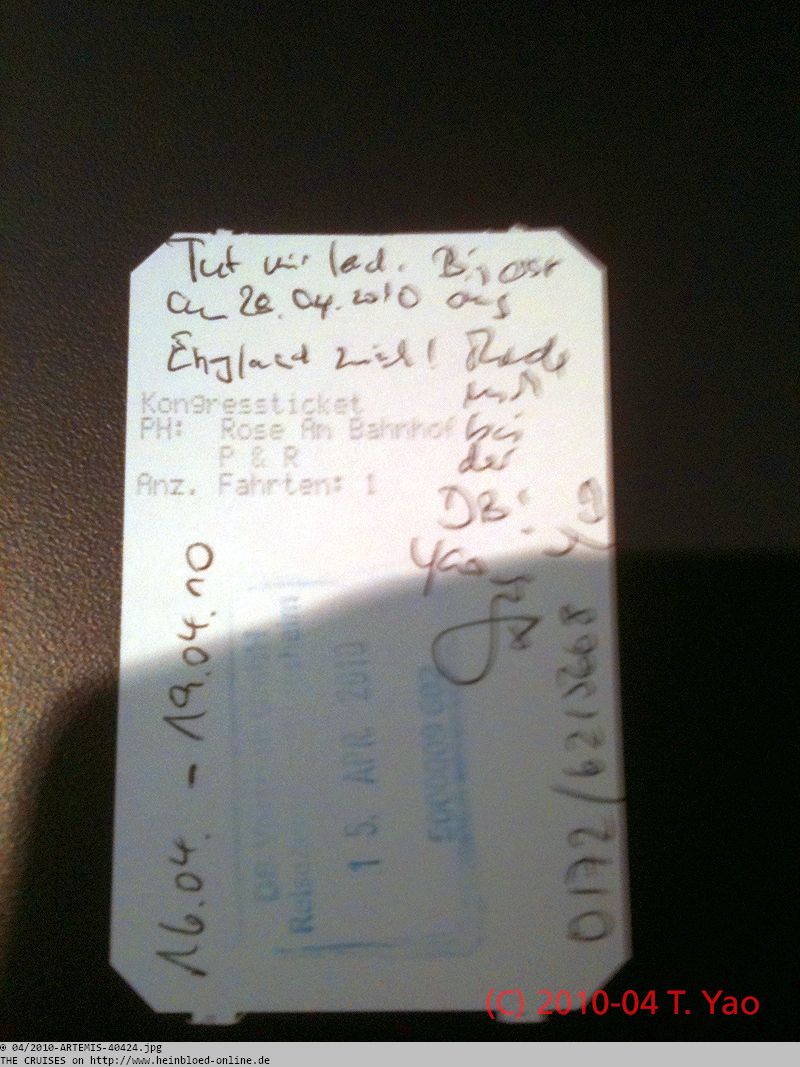 Tut mir leid. Bin erst
am 20.04.2010 aus
England zurück! Rede
mit
bei
der
DB!
Yao
Kongressticket
PH: Rose Am Bahnhof
P & R
Anz. Fahrten: 1
16.04. - 19.04.10
DB
15. APR. 2010
0172/6215668
(C) 2010-04 T. Yao
© 04/2010-ARTEMIS-40424.jpg
THE CRUISES on http://www.heinbloed-online.de